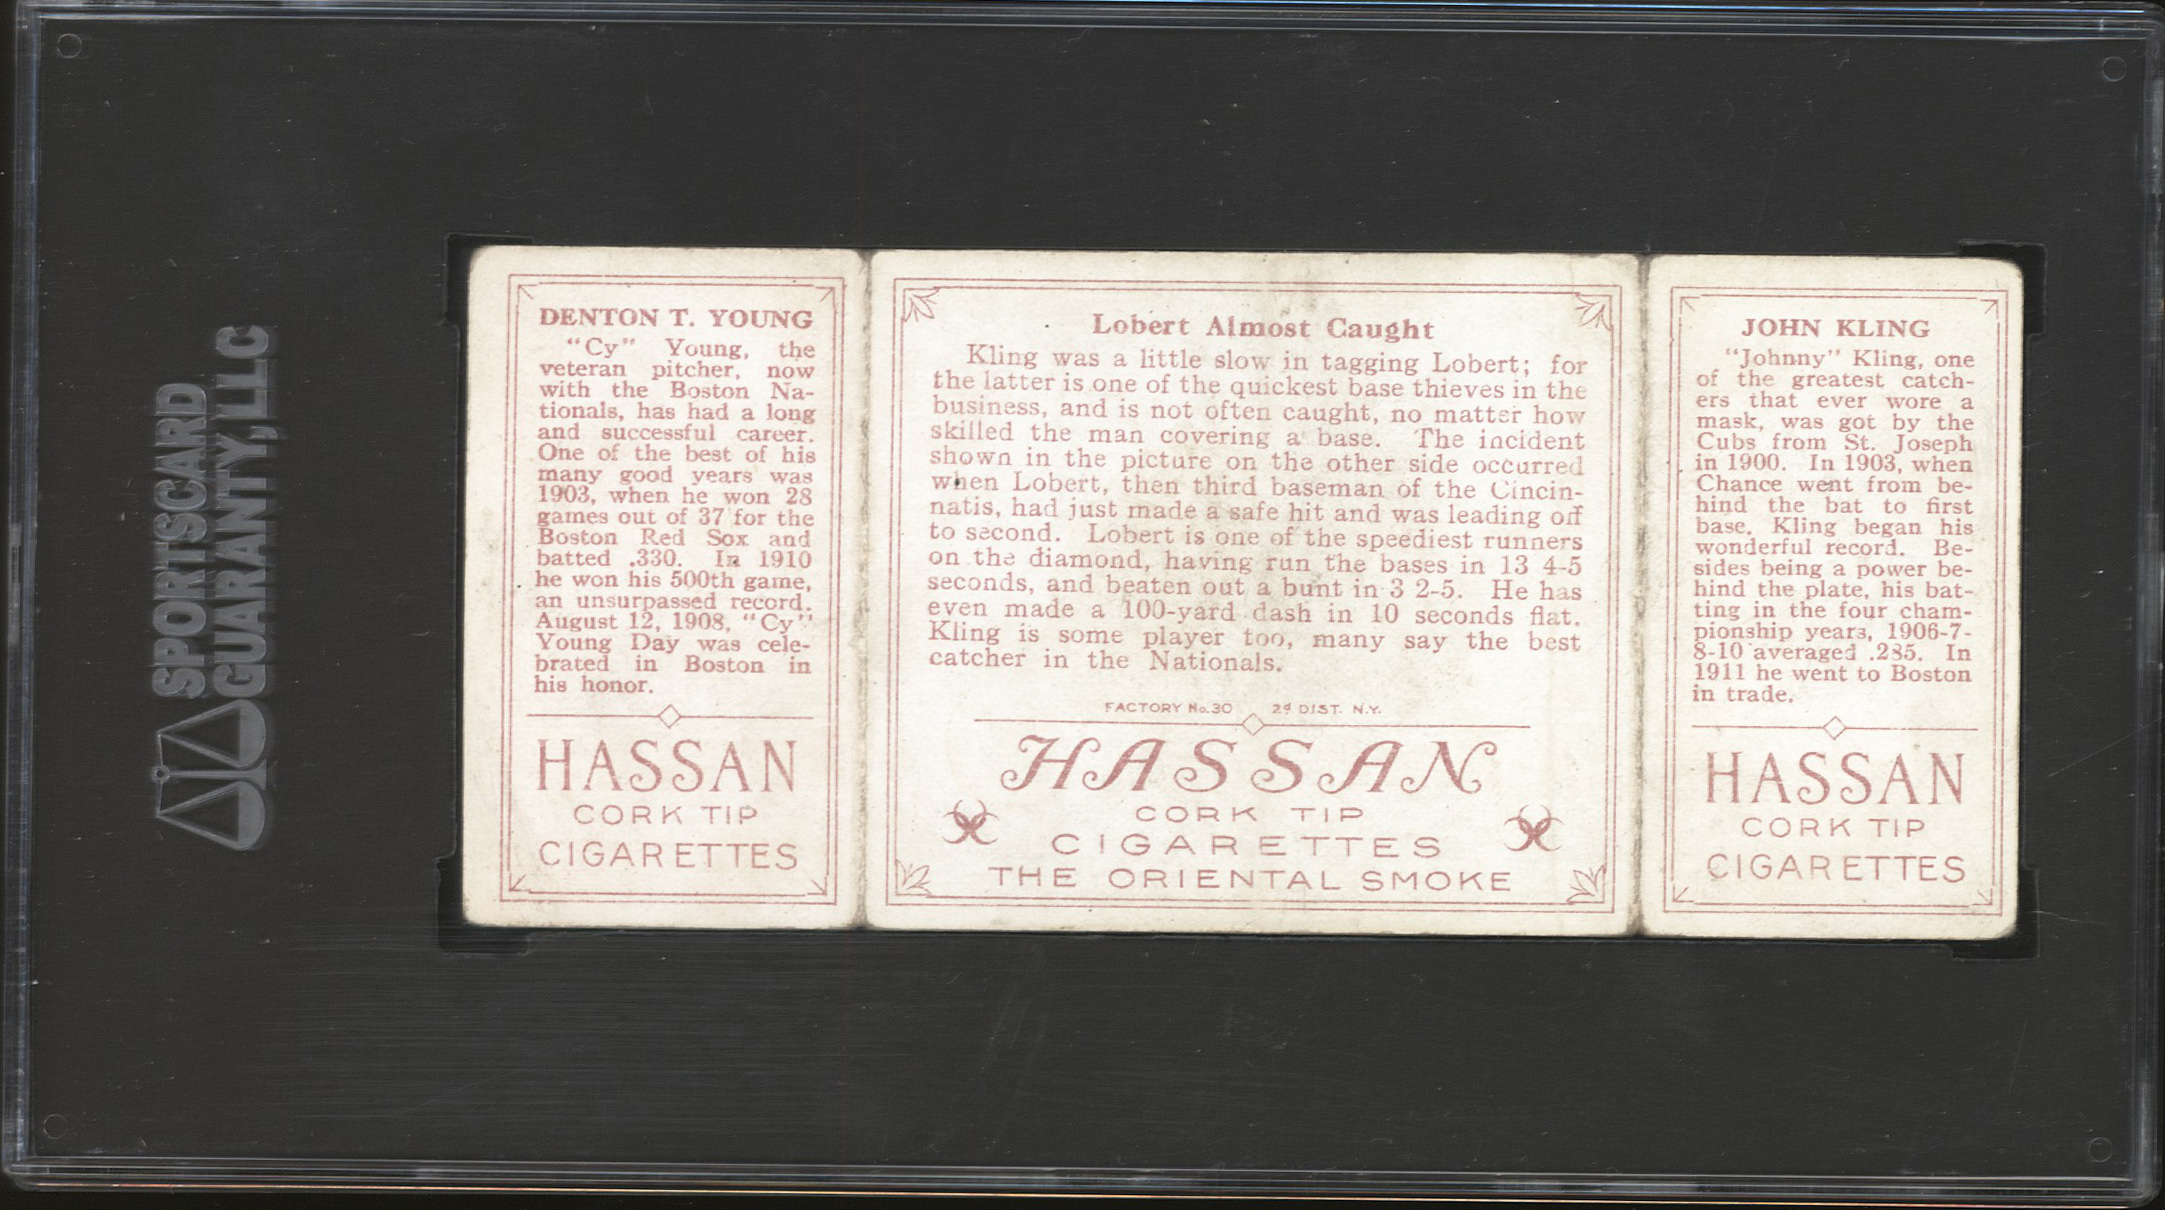 SPORTSCARD
GUARANTY, LLC
DENTON T. YOUNG
"Cy" Young, the
veteran pitcher, now
with the Boston Na-
tionals, has had a long
and successful career.
One of the best of his
many good years was
1903, when he won 28
games out of 37 for the
Boston Red Sox and
batted .330. In 1910
he won his 500th game,
an unsurpassed record.
August 12, 1908, "Cy"
Young Day was cele-
brated in Boston in
his honor.
HASSAN
CORK TIP
CIGARETTES
Lobert Almost Caught
Kling was a little slow in tagging Lobert; for
the latter is one of the quickest base thieves in the
business, and is not often caught, no matter how
skilled the man covering a base. The incident
shown in the picture on the other side occurred
when Lobert, then third baseman of the Cincin-
natis, had just made a safe hit and was leading off
to second. Lobert is one of the speediest runners
on the diamond, having run the bases in 13 4-5
seconds, and beaten out a bunt in 3 2-5. He has
even made a 100-yard dash in 10 seconds flat.
Kling is some player too, many say the best
catcher in the Nationals.
FACTORY No. 30 2d DIST. N.Y.
HASSAN
CORK TIP
CIGARETTES
THE ORIENTAL SMOKE
JOHN KLING
"Johnny" Kling, one
of the greatest catch-
ers that ever wore a
mask, was got by the
Cubs from St. Joseph
in 1900. In 1903, when
Chance went from be-
hind the bat to first
base, Kling began his
wonderful record. Be-
sides being a power be-
hind the plate, his bat-
ting in the four cham-
pionship years, 1906-7-
8-10 averaged .285. In
1911 he went to Boston
in trade.
HASSAN
CORK TIP
CIGARETTES